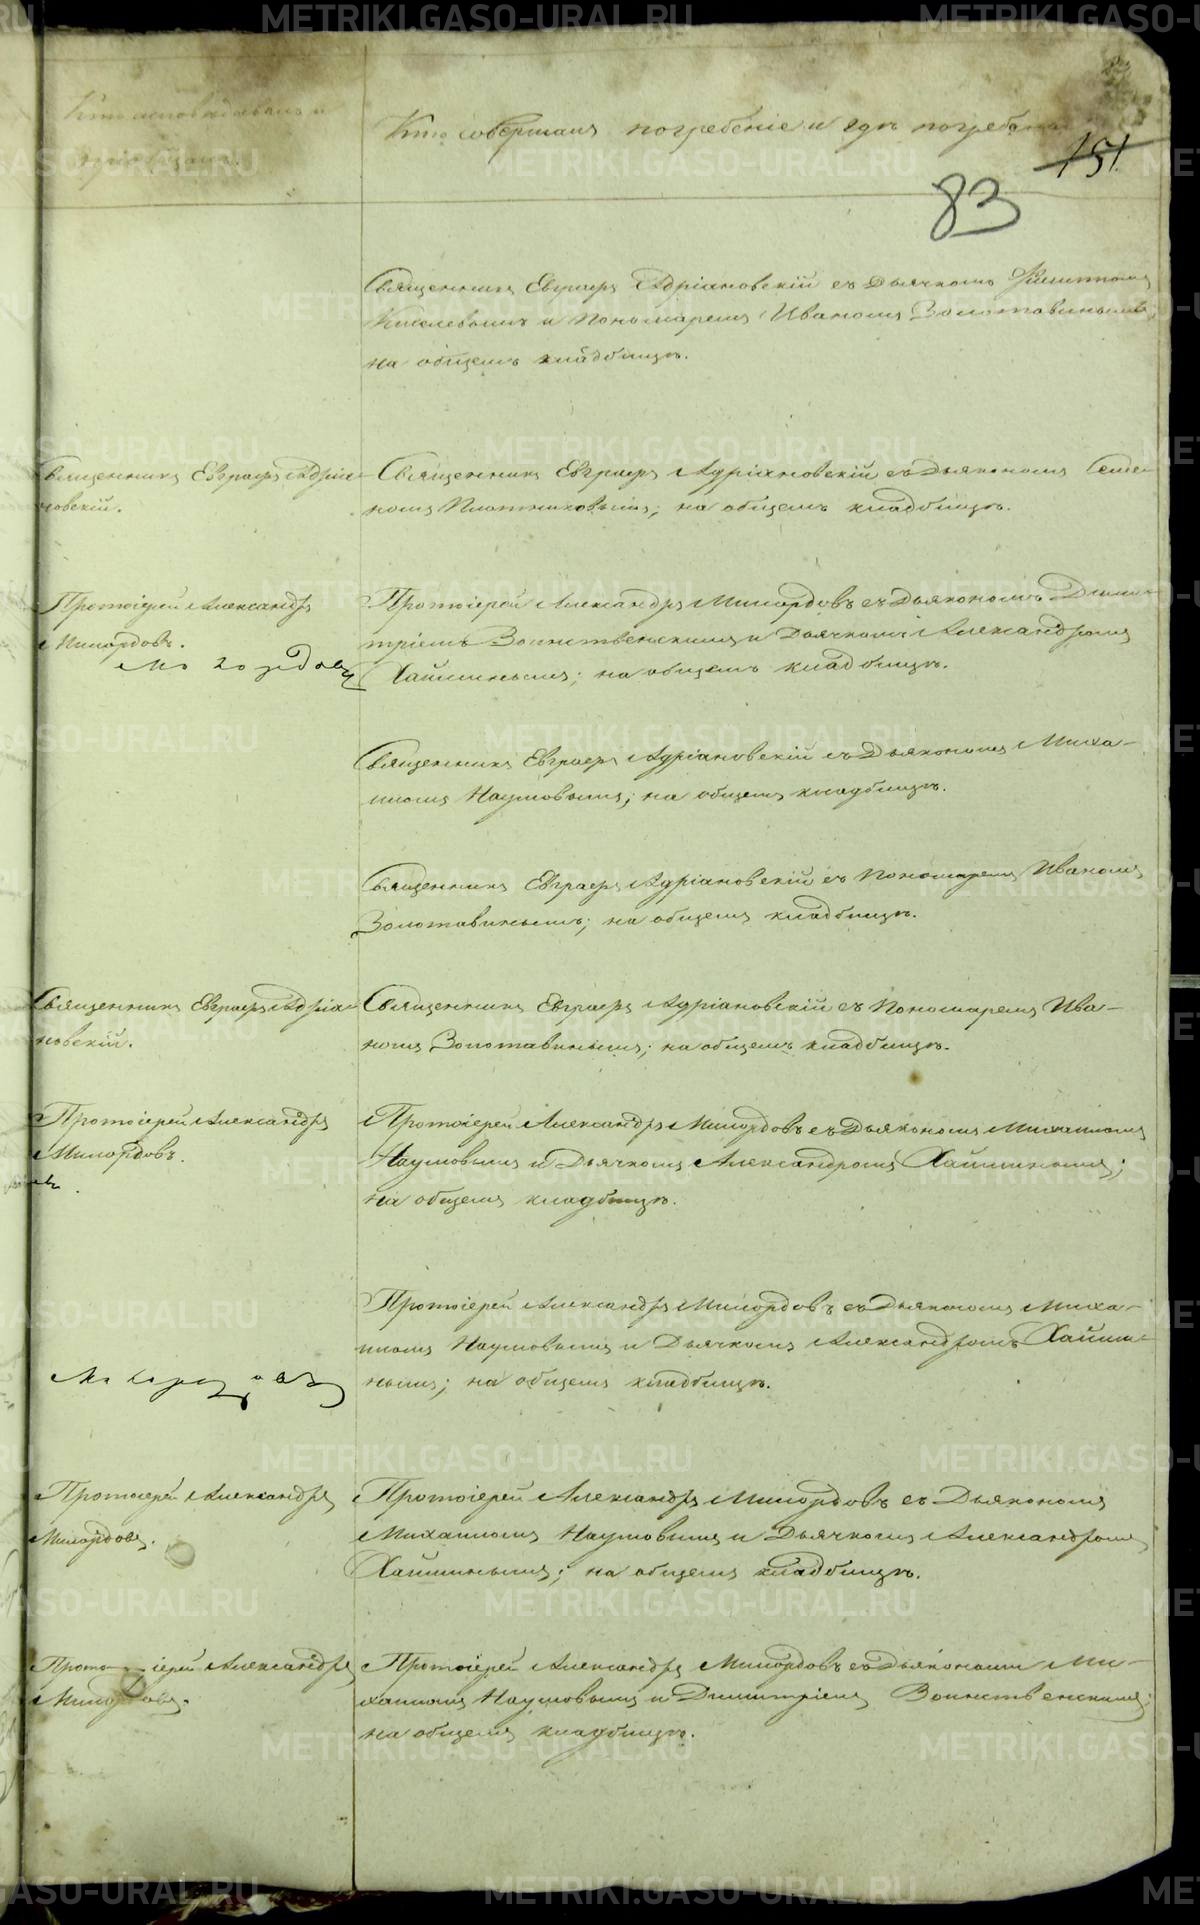 Кто исповѣдывалъ и
пріобщалъ.
Кто совершалъ погребеніе и гдѣ погребены
151.
83
Священникъ Евграфъ Адріановскій съ Дьячкомъ Филиппомъ
Киселевымъ и Пономаремъ Иваномъ Золотавинымъ;
на общемъ кладбищѣ.
Священникъ Евграфъ Адріа-
новскій.
Священникъ Евграфъ Адріановскій съ Дьякономъ Семе-
номъ Плотниковымъ; на общемъ кладбищѣ.
Протоіерей Александръ
Милордовъ.
Протоіерей Александръ Милордовъ съ Дьякономъ Дими-
тріемъ Воинственскимъ и Дьячкомъ Александромъ
Хайминымъ; на общемъ кладбищѣ.
Священникъ Евграфъ Адріановскій съ Дьякономъ Миха-
иломъ Наумовымъ; на общемъ кладбищѣ.
Священникъ Евграфъ Адріановскій съ Пономаремъ Иваномъ
Золотавинымъ; на общемъ кладбищѣ.
Священникъ Евграфъ Адріа-
новскій.
Священникъ Евграфъ Адріановскій съ Пономаремъ Ива-
номъ Золотавинымъ; на общемъ кладбищѣ.
Протоіерей Александръ
Милордовъ.
Протоіерей Александръ Милордовъ съ Дьякономъ Михаиломъ
Наумовымъ и Дьячкомъ Александромъ Хайминымъ;
на общемъ кладбищѣ.
Протоіерей Александръ Милордовъ съ Дьякономъ Миха-
иломъ Наумовымъ и Дьячкомъ Александромъ Хайми-
нымъ; на общемъ кладбищѣ.
Протоіерей Александръ
Милордовъ.
Протоіерей Александръ Милордовъ съ Дьякономъ
Михаиломъ Наумовымъ и Дьячкомъ Александромъ
Хайминымъ; на общемъ кладбищѣ.
Прото-іерей Александръ
Милордовъ.
Протоіерей Александръ Милордовъ съ Дьяконами Ми-
хаиломъ Наумовымъ и Димитріемъ Воинственскимъ;
на общемъ кладбищѣ.
METRIKI.GASO-URAL.RU